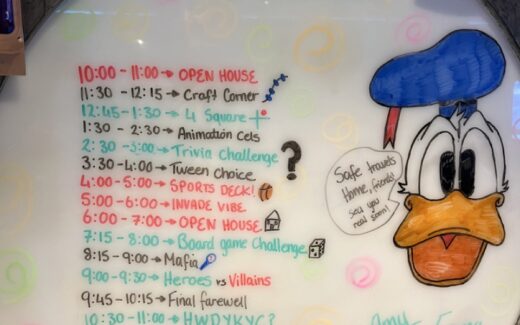 10:00 - 11:00 → OPEN HOUSE
11:30 - 12:15 → Craft Corner
12:45 - 1:30 → 4 Square
1:30 - 2:30 → Animation Cels
2:30 - 3:00 → Trivia Challenge
3:30 - 4:00 → Tween Choice
4:00 - 5:00 → SPORTS DECK!
5:00 - 6:00 → INVADE VIBE
6:00 - 7:00 → OPEN HOUSE
7:15 - 8:00 → Board game Challenge
8:15 - 9:00 → Mafia
9:00 - 9:30 → Heroes vs Villains
9:45 - 10:15 → Final farewell
10:30 - 11:00 → HWDYKYC?
?
Safe travels
Home, friends!
sea you
real soon!
Amy